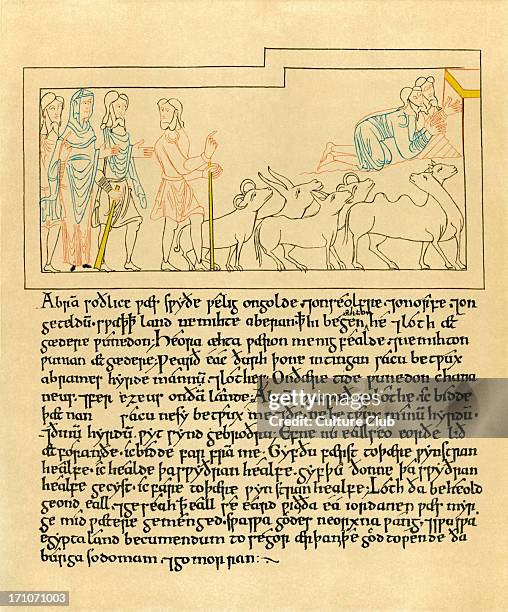 Abrā soðlice ƿæs sƿyðe ƿelig on golde ⁊ on seolfre ⁊ on orfe ⁊ on
geteldū. sƿa ꝥ ꝥ land ne mihte aberan. ꝥ hi begen he ⁊ loth æt
gædere ƿunedon. Heora æhta ƿæron menigfealde. ⁊ ne mihton
ƿunian ætgædere. Ƿearð eac ðurh þone intingan sacu betƿux
abrames hyrde mannū ⁊ lothes. On ðære tide ƿunedon chana
neus. ⁊ ferezeus on ðā lande. to lothe. ic bidde
þæt nan sacu ne sy betƿux me ⁊ ðe. ne betƿux minū hyrdū.
⁊ ðinū hyrdū. ƿyt synd gebroðru. Efne nu eall seo eorðe lið
ætforan ðe. ic bidde far frā me. Gyf ðu færst to ðære ƿynstran
healfe. ic healde þa sƿyðran healfe. gyf þu ðonne þa sƿyðran
healfe gecyst. ic fare to ðære ƿynstran healfe. Loth ða beheold
geond eall. ⁊ geseah ꝥ eall se eard ƿið þa ea iordanen ƿæs myr
ge mid ƿætere gemenged. sƿa sƿa godes neorxna ƿang. ⁊ sƿa sƿa
egypta land becumendum to segor. ær þan þe god toƿende ða
burga sodomam. ⁊ gomorran:
gettyimages
Credit: Culture Club
171071003